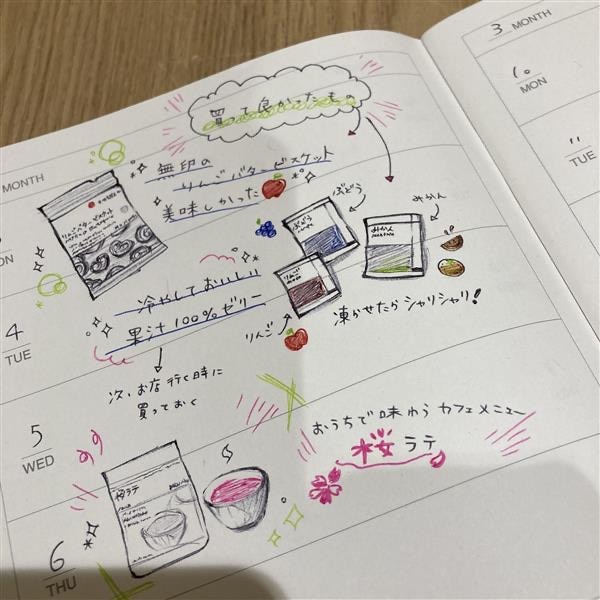 買って良かったもの
無印の
りんごバタービスケット
美味しかった
冷やしておいしい
果汁100%ゼリー
次、お店行く時に
買っておく
ぶどう
みかん
ぶどう
みかん
りんご
りんご
凍かせたらシャリシャリ!
おうちで味わうカフェメニュー
桜ラテ
桜ラテ
MONTH
MON
4
TUE
5
WED
6
THU
3 MONTH
10
MON
11
TUE